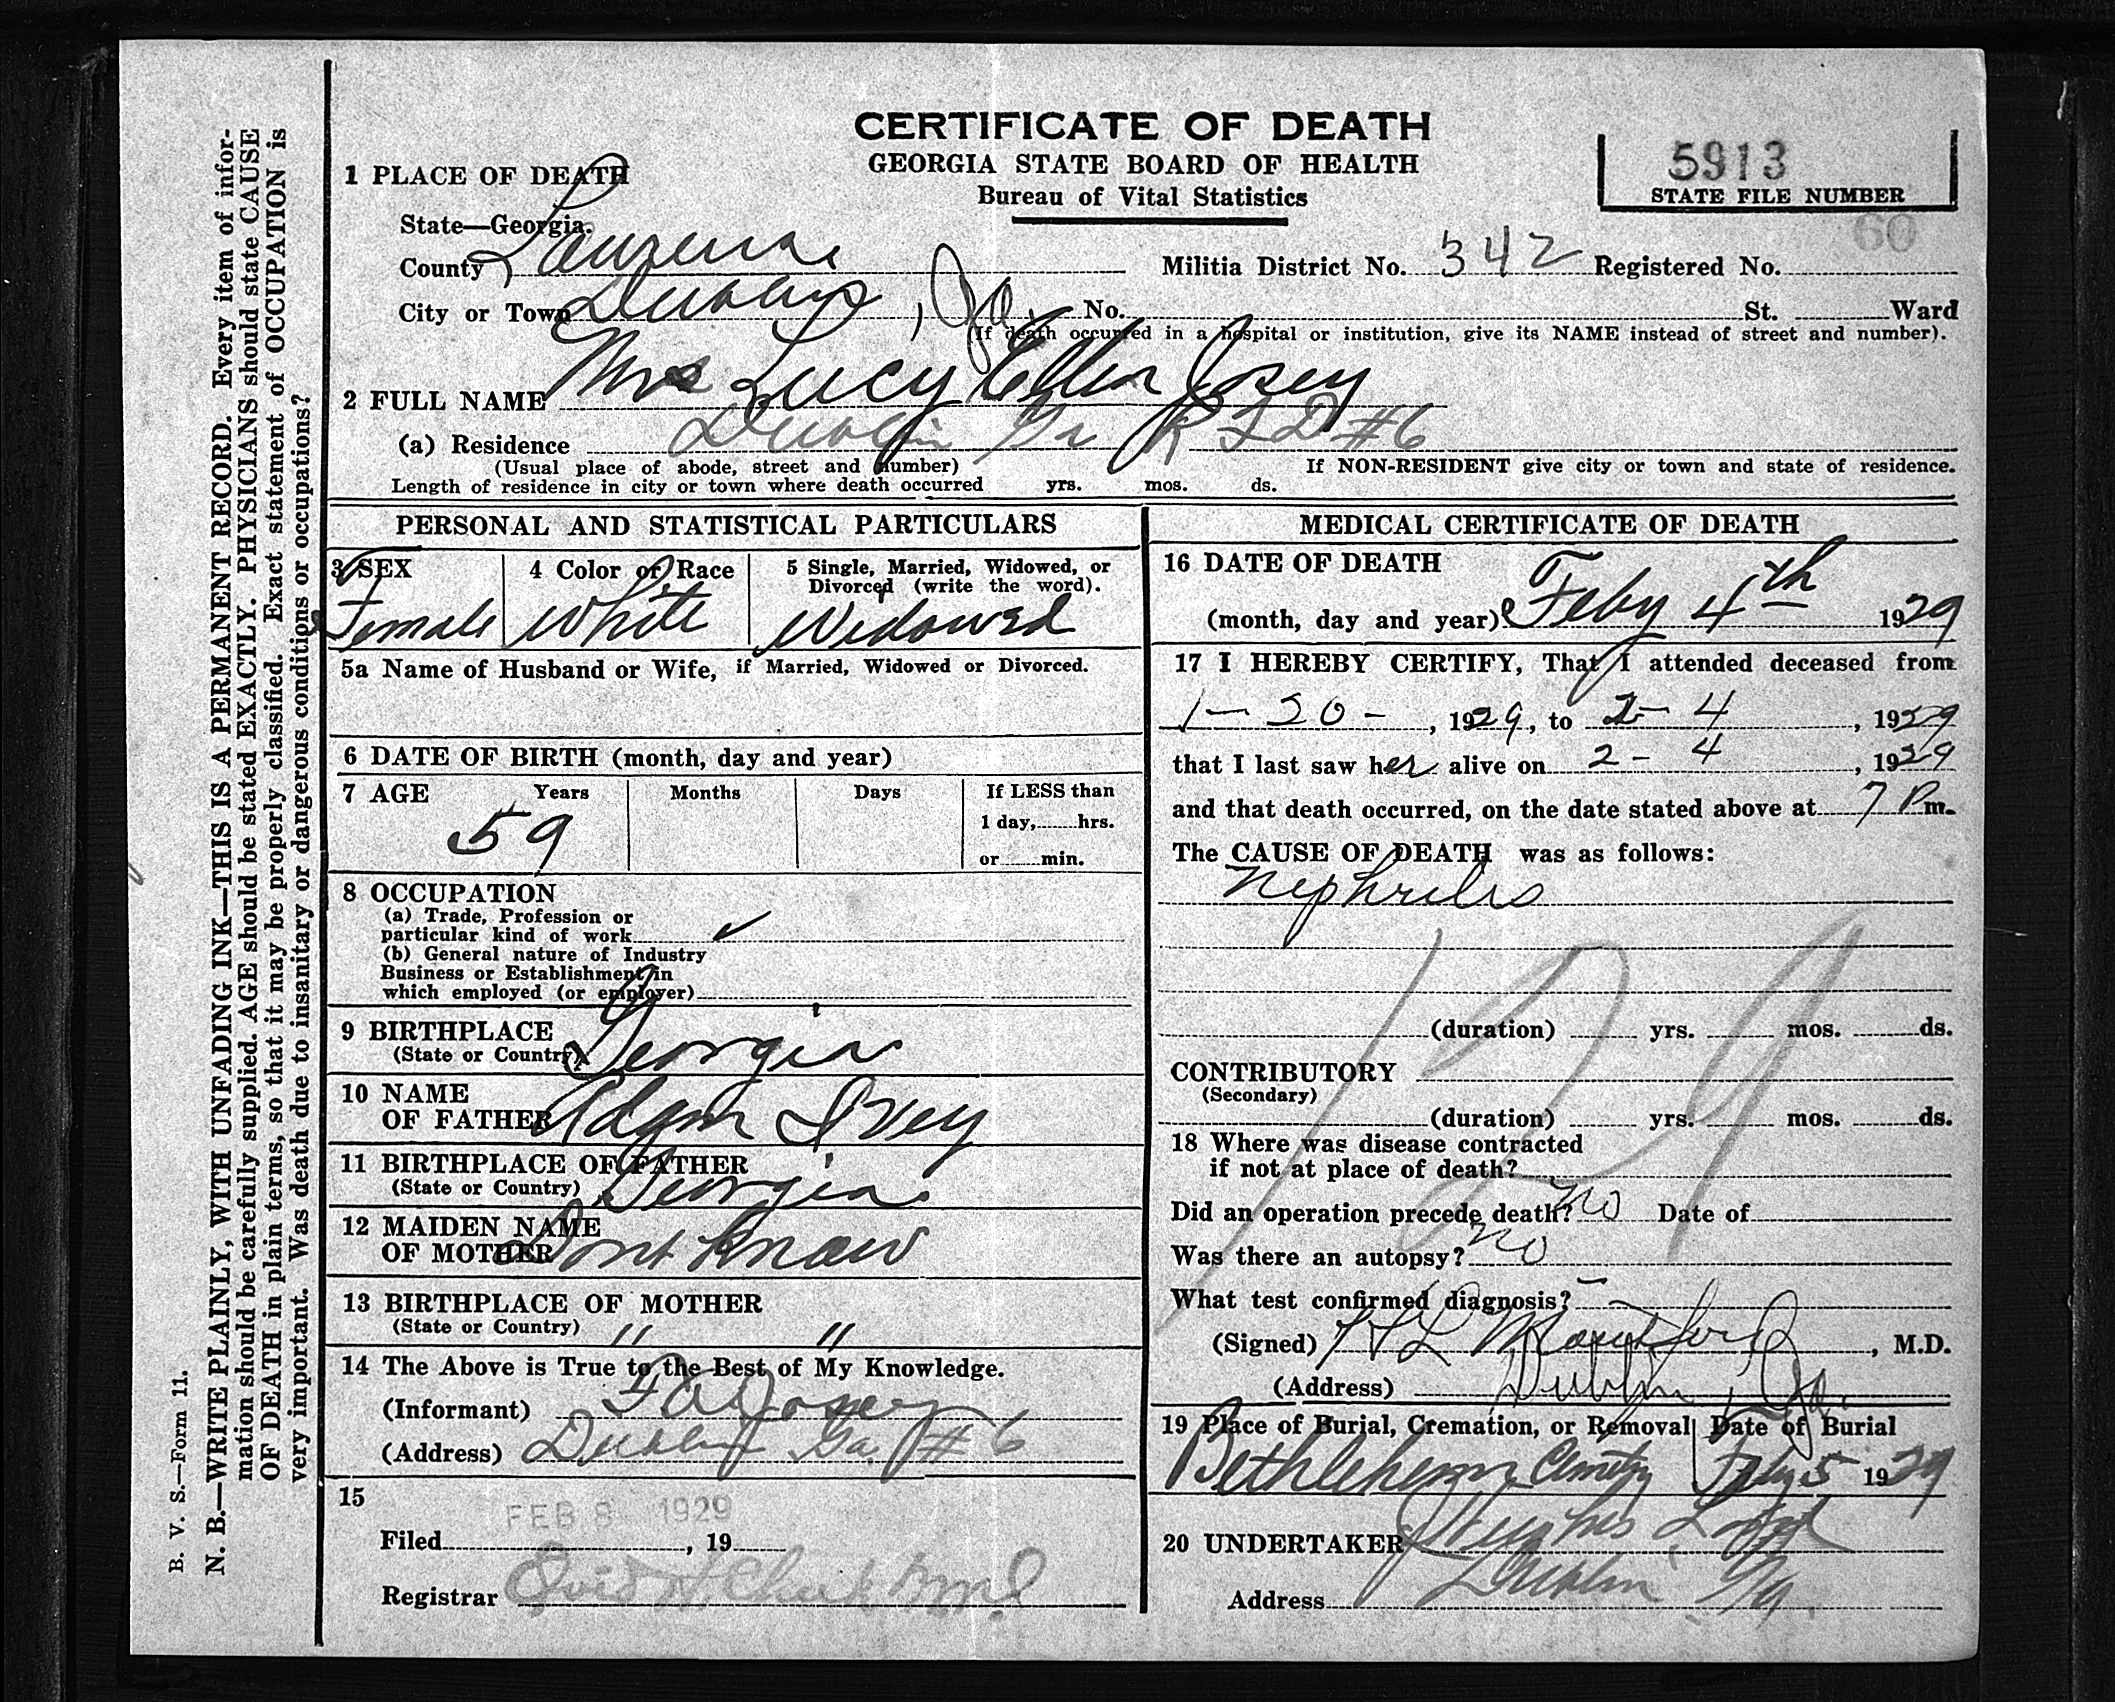 CERTIFICATE OF DEATH
GEORGIA STATE BOARD OF HEALTH
Bureau of Vital Statistics
5913
STATE FILE NUMBER
60
1 PLACE OF DEATH
State—Georgia.
County Laurens
Militia District No. 342 Registered No.
City or Town Dublin, Ga. No. St. Ward
(If death occurred in a hospital or institution, give its NAME instead of street and number).
2 FULL NAME Mrs Lucy Ellen Josey
(a) Residence Dublin Ga R F D #6
(Usual place of abode, street and number) If NON-RESIDENT give city or town and state of residence.
Length of residence in city or town where death occurred yrs. mos. ds.
PERSONAL AND STATISTICAL PARTICULARS
3 SEX
Female
4 Color or Race
White
5 Single, Married, Widowed, or
Divorced (write the word).
Widowed
5a Name of Husband or Wife, if Married, Widowed or Divorced.
6 DATE OF BIRTH (month, day and year)
7 AGE Years Months Days If LESS than
59
1 day, hrs.
or min.
8 OCCUPATION
(a) Trade, Profession or
particular kind of work ✓
(b) General nature of Industry
Business or Establishment in
which employed (or employer)
9 BIRTHPLACE
(State or Country) Georgia
10 NAME
OF FATHER Adam Ivey
11 BIRTHPLACE OF FATHER
(State or Country) Georgia
12 MAIDEN NAME
OF MOTHER Dont Know
13 BIRTHPLACE OF MOTHER
(State or Country) " "
14 The Above is True to the Best of My Knowledge.
(Informant) Josey
(Address) Dublin Ga. #6
15
FEB 8 1929
Filed , 19
Registrar Ovid H Cheek M.D
MEDICAL CERTIFICATE OF DEATH
16 DATE OF DEATH
(month, day and year) Feby 4th 1929
17 I HEREBY CERTIFY, That I attended deceased from
1-20-, 1929, to 2-4, 1929
that I last saw her alive on 2-4, 1929
and that death occurred, on the date stated above at 7 P m.
The CAUSE OF DEATH was as follows:
Nephritis
129
(duration) yrs. mos. ds.
CONTRIBUTORY
(Secondary)
(duration) yrs. mos. ds.
18 Where was disease contracted
if not at place of death?
Did an operation precede death? no Date of
Was there an autopsy? no
What test confirmed diagnosis? —
(Signed) Montford, M.D.
(Address) Dublin, Ga.
19 Place of Burial, Cremation, or Removal Date of Burial
Bethlehem Cemetery Feby 5 1929
20 UNDERTAKER
Address Dublin Ga.
B. V. S.—Form 11.
N. B.—WRITE PLAINLY, WITH UNFADING INK—THIS IS A PERMANENT RECORD. Every item of infor-
mation should be carefully supplied. AGE should be stated EXACTLY. PHYSICIANS should state CAUSE
OF DEATH in plain terms, so that it may be properly classified. Exact statement of OCCUPATION is
very important. Was death due to insanitary or dangerous conditions or occupations?